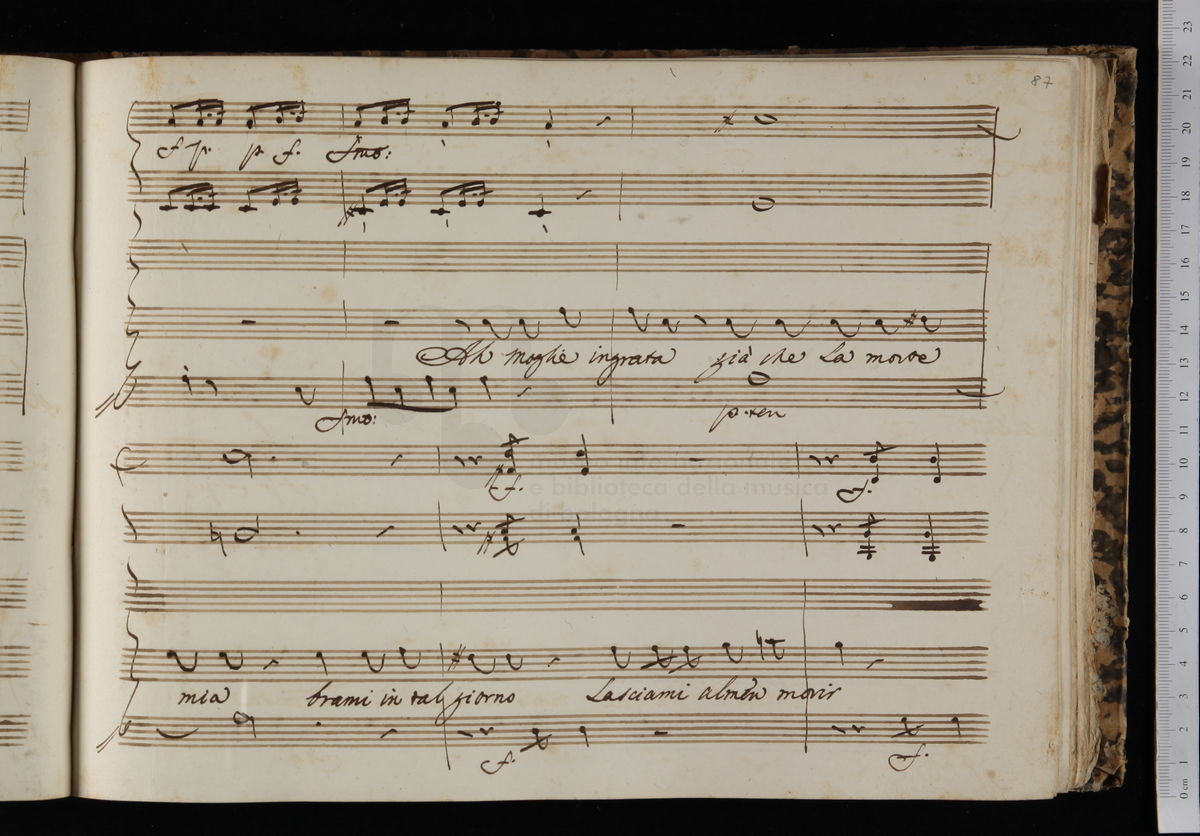 87
f p. p. f. fmo:
Ah moglie ingrata già che la morte
fmo: p. ten
f. f.
mia brami in tal giorno Lasciami almen morir
f. f.
e biblioteca della musica
di bologna
23
22
21
20
19
18
17
16
15
14
13
12
11
10
9
8
7
6
5
4
3
2
1
0 cm